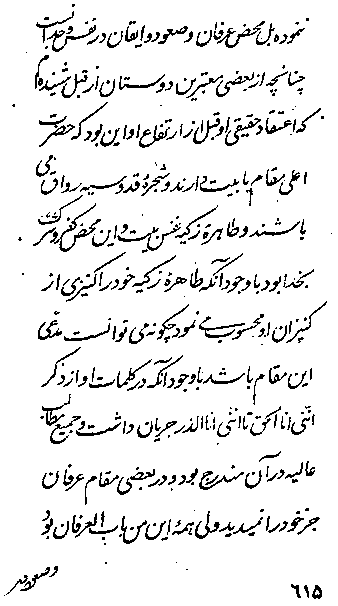 ننموده بل محض عرفان و صعود و ایقان در نفس و حدانست
چنانچه از بعضی معتبرین دوستان از قبل شنیده‌ام
که اعتقاد حقیقی او قبل از ارتفاع او این بود که حضرت
اعلی مقام بابیت دارند و شجرهٔ قدوسیه رواق می
باشند و طاهرهٔ زکیه نفس بیت و این محض کفر و شرک
بخدا بود با وجود آنکه طاهرهٔ زکیه خود را کنیزی از
کنیزان او محسوب می نمود چگونه می توانست مدعی
این مقام باشد با وجود آنکه در کلمات او از ذکر
انّنی انا الحق تا انّنی انا الذر جریان داشت و جمیع مطالب
عالیه در آن مندرج بود و در بعضی مقام عرفان
جز خود را نمیدید ولی همهٔ این من باب العرفان بود
و صعود در
۶۱۵